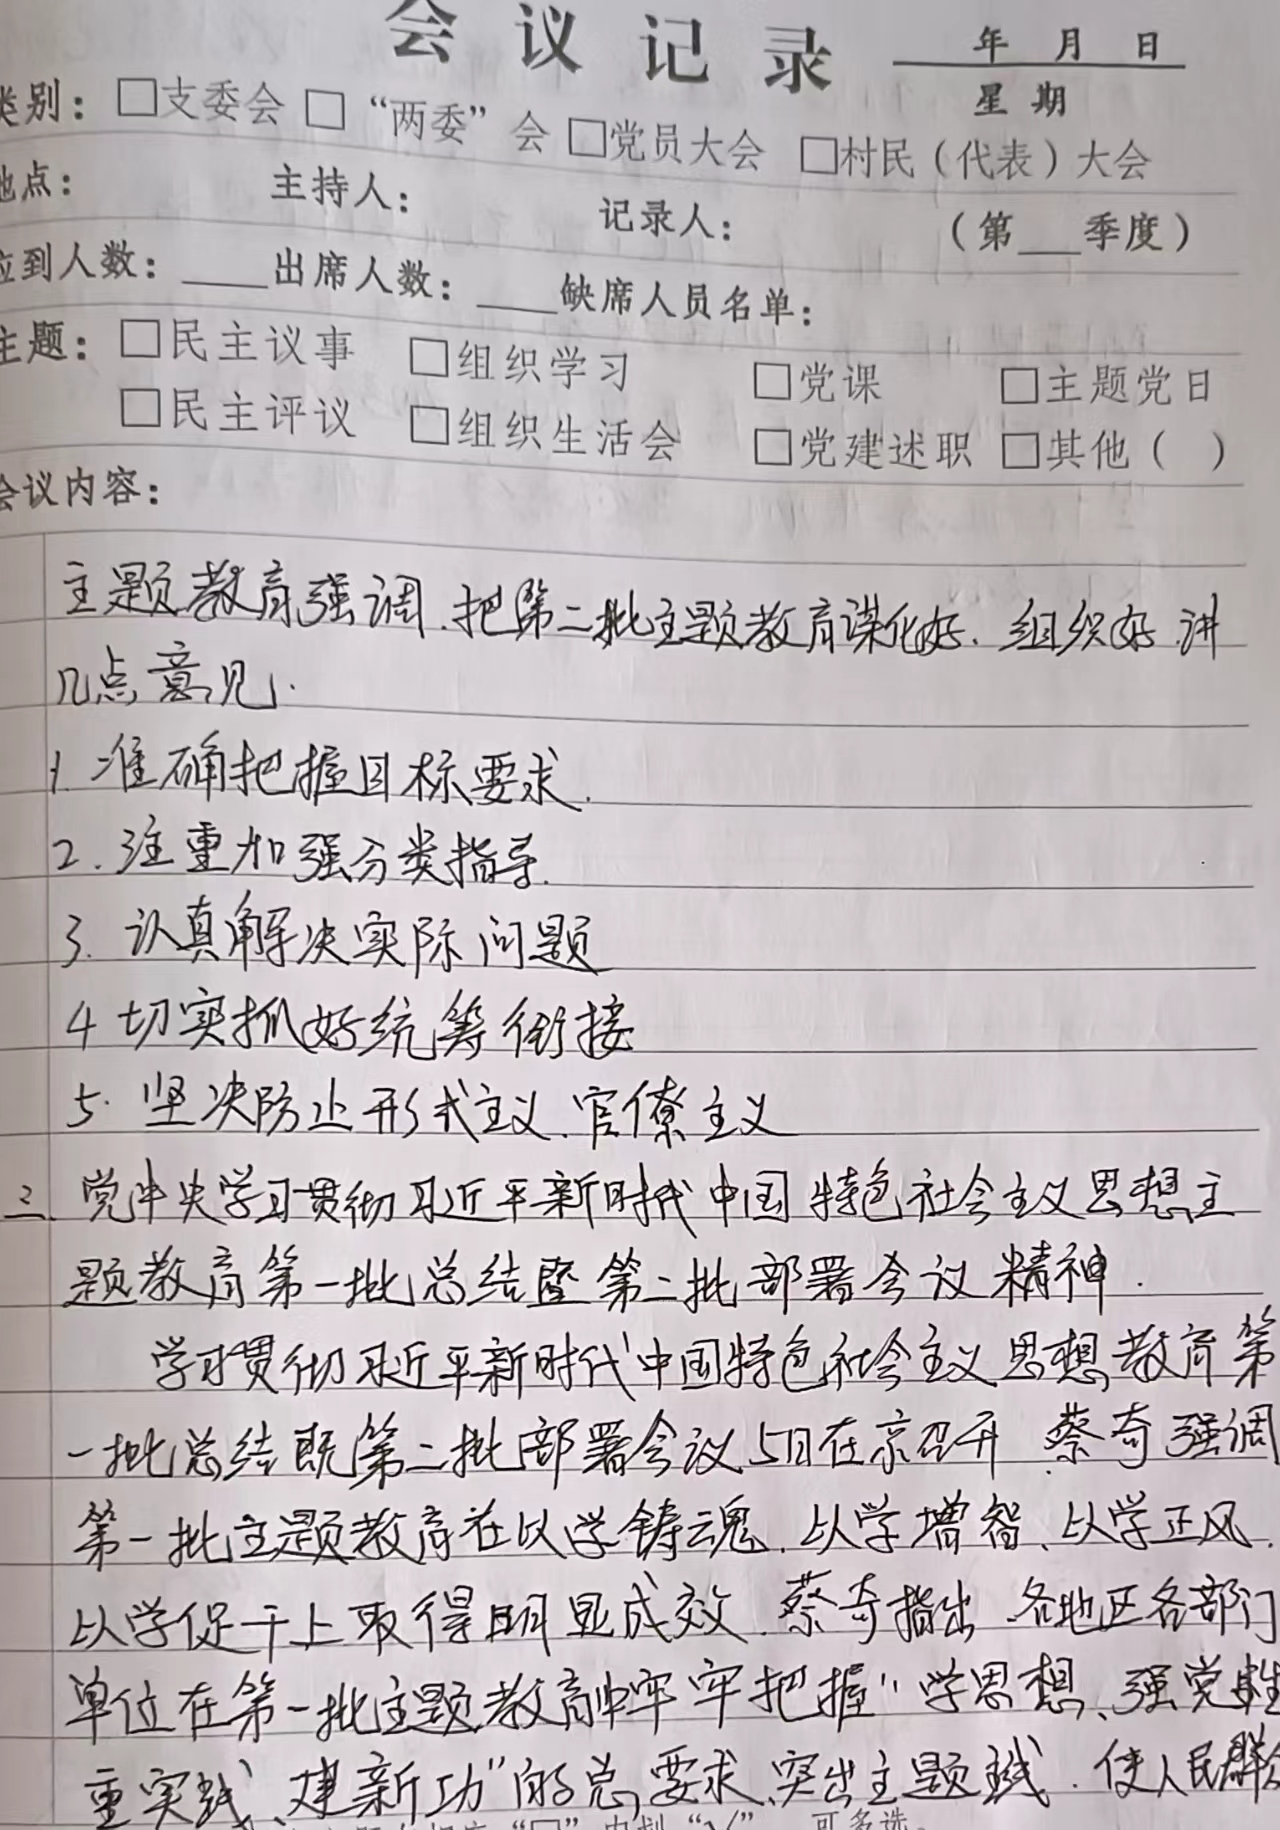 会议记录 年 月 日
星期
类别：□支委会 □“两委”会 □党员大会 □村民（代表）大会
地点： 主持人： 记录人： （第___季度）
应到人数：____出席人数：____缺席人员名单：
主题：□民主议事 □组织学习 □党课 □主题党日
□民主评议 □组织生活会 □党建述职 □其他（ ）
会议内容：
主题教育强调、把第二批主题教育谋化好、组织好 讲
几点意见.
1. 准确把握目标要求.
2. 注重加强分类指导.
3. 认真解决实际问题
4 切实抓好统筹衔接
5. 坚决防止形式主义、官僚主义
二、党中央学习贯彻习近平新时代中国特色社会主义思想主
题教育第一批总结暨第二批部署会议精神.
学习贯彻习近平新时代中国特色社会主义思想教育第
一批总结既第二批部署会议5日在京召开 蔡奇强调
第一批主题教育在以学铸魂、以学增智、以学正风、
以学促干上取得明显成效、蔡奇指出 各地区各部门
单位在第一批主题教育中牢牢把握“学思想、强党性
重实践、建新功”的总要求、突出主题 使人民群众
“□”内划“√”，可多选。